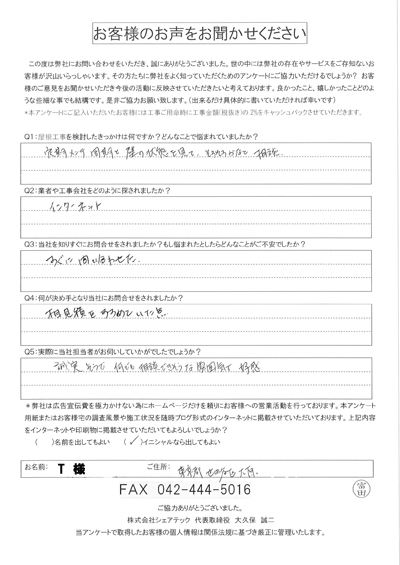 お客様のお声をお聞かせください
この度は弊社にお問い合わせをいただき、誠にありがとうございました。世の中には弊社の存在やサービスをご存知ないお
客様が沢山いらっしゃいます。その方たちに弊社をよく知っていただくためのアンケートにご協力いただけるでしょうか？ お客
様のご意見をお聞かせいただき今後の活動に反映させていただきたいと考えております。良かったこと、嬉しかったことどのよ
うな些細な事でも結構です。是非ご協力お願い致します。（出来るだけ具体的に書いていただければ幸いです）
*本アンケートにご記入いただいたお客様には工事ご用命時に工事金額（税抜き）の 2%をキャッシュバックさせていただきます。
Q1：屋根工事を検討したきっかけは何ですか？どんなことで悩まれていましたか？
壁の状態を見て、 相談
Q2：業者や工事会社をどのように探されましたか？
インターネット
Q3：当社を知りすぐにお問合せをされましたか？もし悩まれたとしたらどんなことがご不安でしたか？
すぐに問い合わせた
Q4：何が決め手となり当社にお問合せをされましたか？
相見積をすすめていた点
Q5：実際に当社担当者がお伺いしていかがでしたでしょうか？
誠実そうで 何でも相談できそうな雰囲気で 好感
＊弊社は広告宣伝費を極力かけない為にホームページだけを頼りにお客様への営業活動を行っております。本アンケート
用紙またはお客様宅の調査風景や施工状況を随時ブログ形式のインターネットに掲載させていただいております。上記内容
をインターネットや印刷物に掲載させていただいてもよろしいでしょうか？
（ ）名前を出してもよい （✓）イニシャルなら出してもよい
お名前： T 様 ご住所： 東京都
FAX 042-444-5016
富田
ご協力ありがとうございました。
株式会社シェアテック 代表取締役 大久保 誠二
当アンケートで取得したお客様の個人情報は関係法規に基づき厳正に管理いたします。